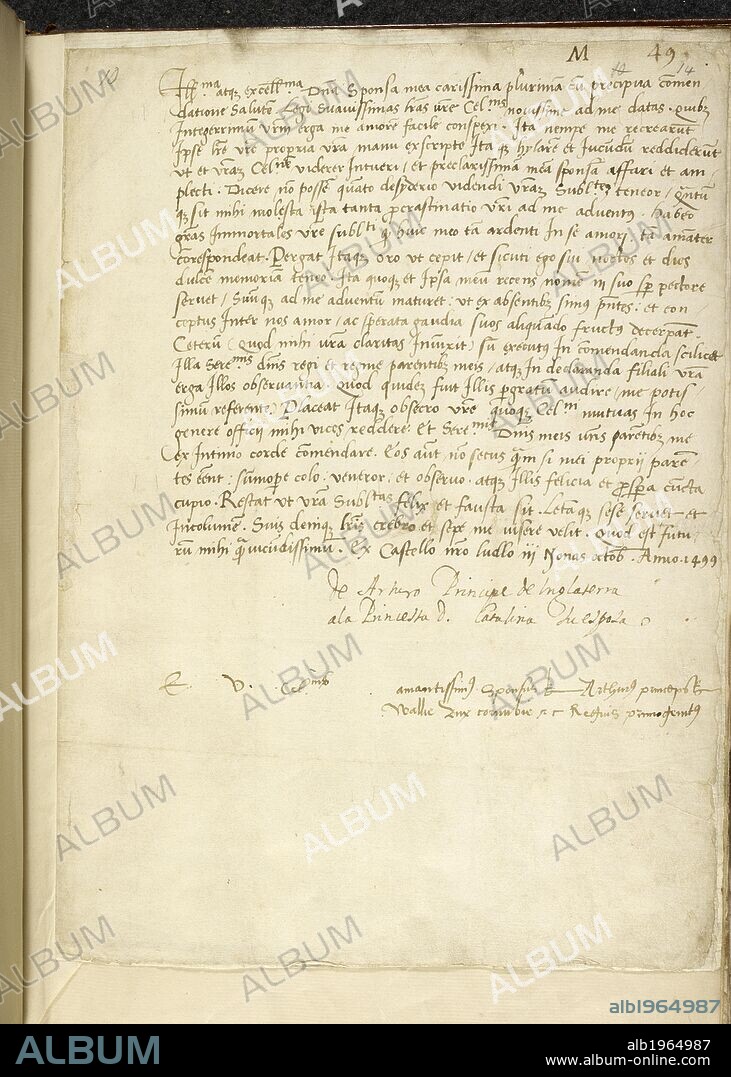 M 49
14
Ill.ma atq; excell.ma Dña Sponsa mea carissima plurimã cũ precipua comen
datione Salutẽ. Legi Suavissimas has vre Cel.nis novissime ad me datas. quibz
Integerrimũ vrm erga me amorẽ facile conspexi. Ita nempe me recrearũt
Ipse lre vre propria vra manu exscripte Ita q; hylarẽ et Iucũdũ reddiderũt
ut et vraz Cel.nẽ viderer Intueri / et preclarissimã meã sponsaz affari et am
plecti. Dicere nõ possem quãto desyderio videndi vraz Subl.tez teneor / quãtũ
q; sit mihi molesta ista tanta procrastinatio vri ad me adventq. Habeo
grãs Immortales vre subl.ti q huic meo tã ardenti In se amori / tã amãter
correspondeat. Pergat Itaq; oro ut cepit / et sicuti ego sui noctes et dies
dulcẽ memoriam teneo. Ita quoq; et Ipsa meũ recens nomẽ in suo sp pectore
servet / Suũq; ad me adventũ maturet: ut ex absentibz simus pñtes: et con
ceptus Inter nos amor / ac sperata gaudia suos aliquãdo fructq decerpãt.
Ceterũ (quod mihi vra claritas Iniũxit) sũ executq In comendanda scilicet
Illa Sere.mis dñis regi et regine parentibz meis / atq; In declaranda filiali vra
erga Illos observãtia. Quod quidez fuit Illis pgratũ audire / me potis
simũ referente. Placeat Itaq; obsecro vre quoq; Cel.ni mutuas In hoc
genere officii mihi vices reddere. Et Sere.mis Dñis meis vris parẽtibz me
ex Intimo corde cõmendare. Eos aũt nõ secus quã si mei proprii parẽ
tes eẽnt: sũmope colo. veneror. et observo. atq; Illis felicia et pspa cũcta
cupio. Restat ut vra Subl.tas felix et fausta sit. Letaq; sese servet et
Incolumẽ. Suis deniq; lris crebro et sepe me visere velit. Quod est futu
rũ mihi quã iucũdissimũ. Ex Castello nro Ludlo iij Nonas octob. Anno. 1499
de Arturo Principe de Inglaterra
a la Princesa d. Catalina su esposa
E. V. Cel.nis amantissimq sponsus Arthurq princeps
Wallie Dux cornubie &c Regius primogenitq
ALBUM
alb1964987
ALBUM
alb1964987
www.album-online.com